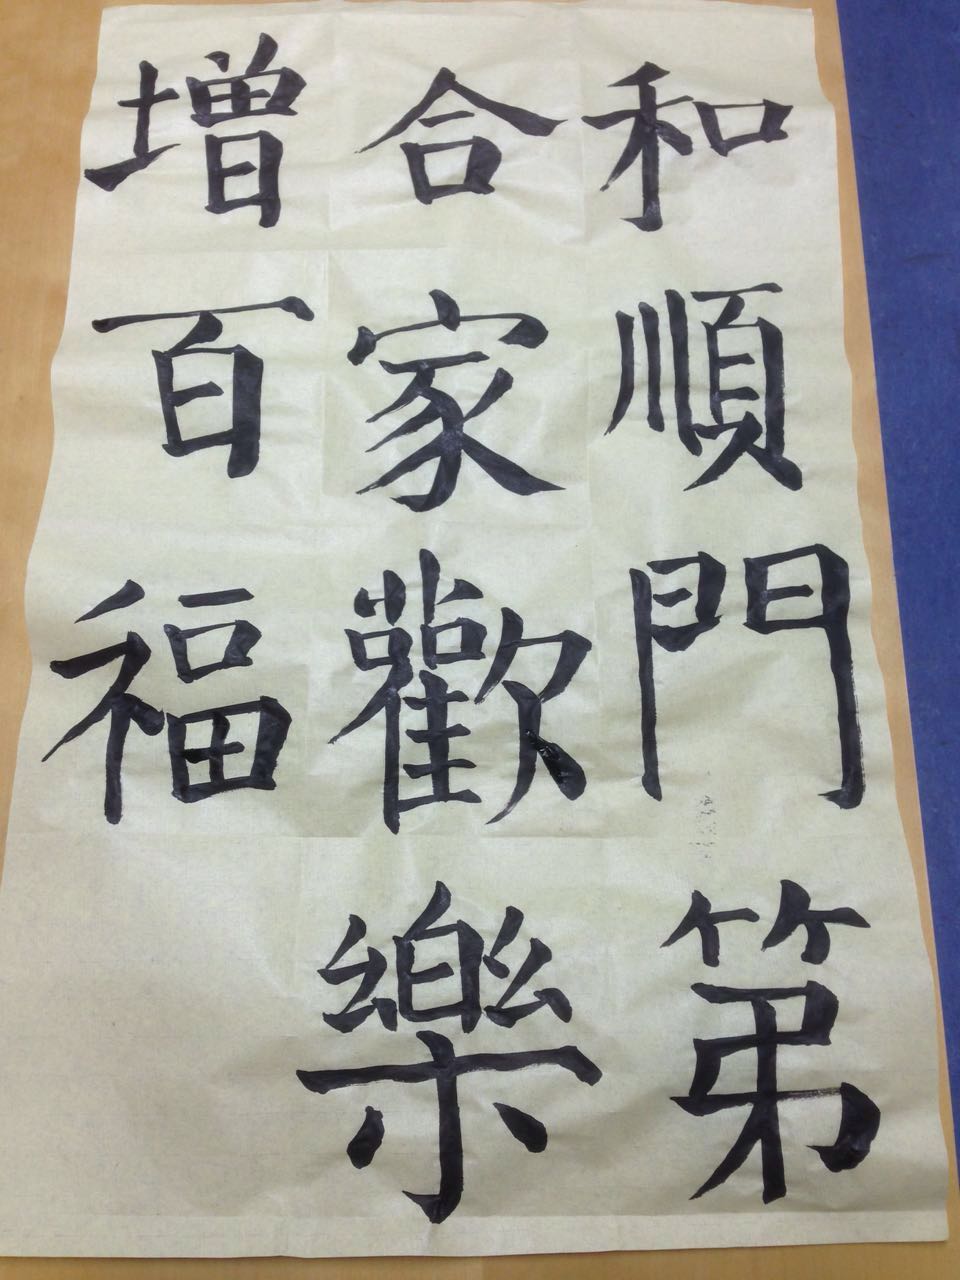 和順門第
合家歡樂
增百福